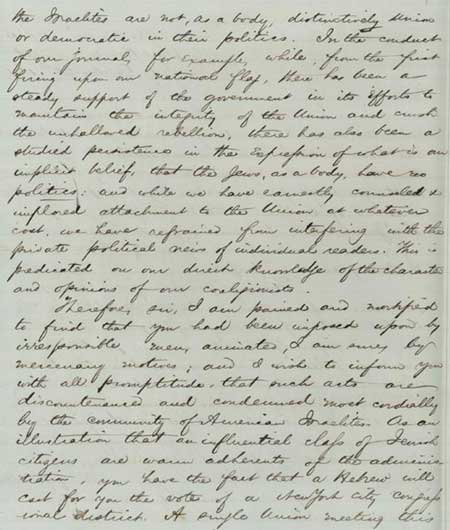 the Israelites are not, as a body, distinctively Union
or democratic in their politics. In the conduct
of our journal, for example, while, from the first
firing upon our national flag, there has been a
steady support of the government in its efforts to
maintain the integrity of the Union and crush
the unhallowed rebellion, there has also been a
studied persistence in the expression of what is an
implicit belief, that the Jews, as a body, have no
politics: and while we have earnestly counseled &
implored attachment to the Union at whatever
cost, we have refrained from interfering with the
private political veiws of individual readers. This is
predicated on our direct knowledge of the character
and opinions of our coreligionists
Therefore, sir, I am pained and mortified
to find that you had been imposed upon by
irresponsible men, animated, I am sure, by
mercenary motives; and I wish to inform you
with all promptitude, that such acts are
discountenanced and condemned most cordially
by the community of American Israelites. As an
illustration that an influential class of Jewish
citizens are warm adherents of the adminis-
tration, you have the fact that a Hebrew will
cast for you the vote of a New York city congress
ional district. A single Union meeting this